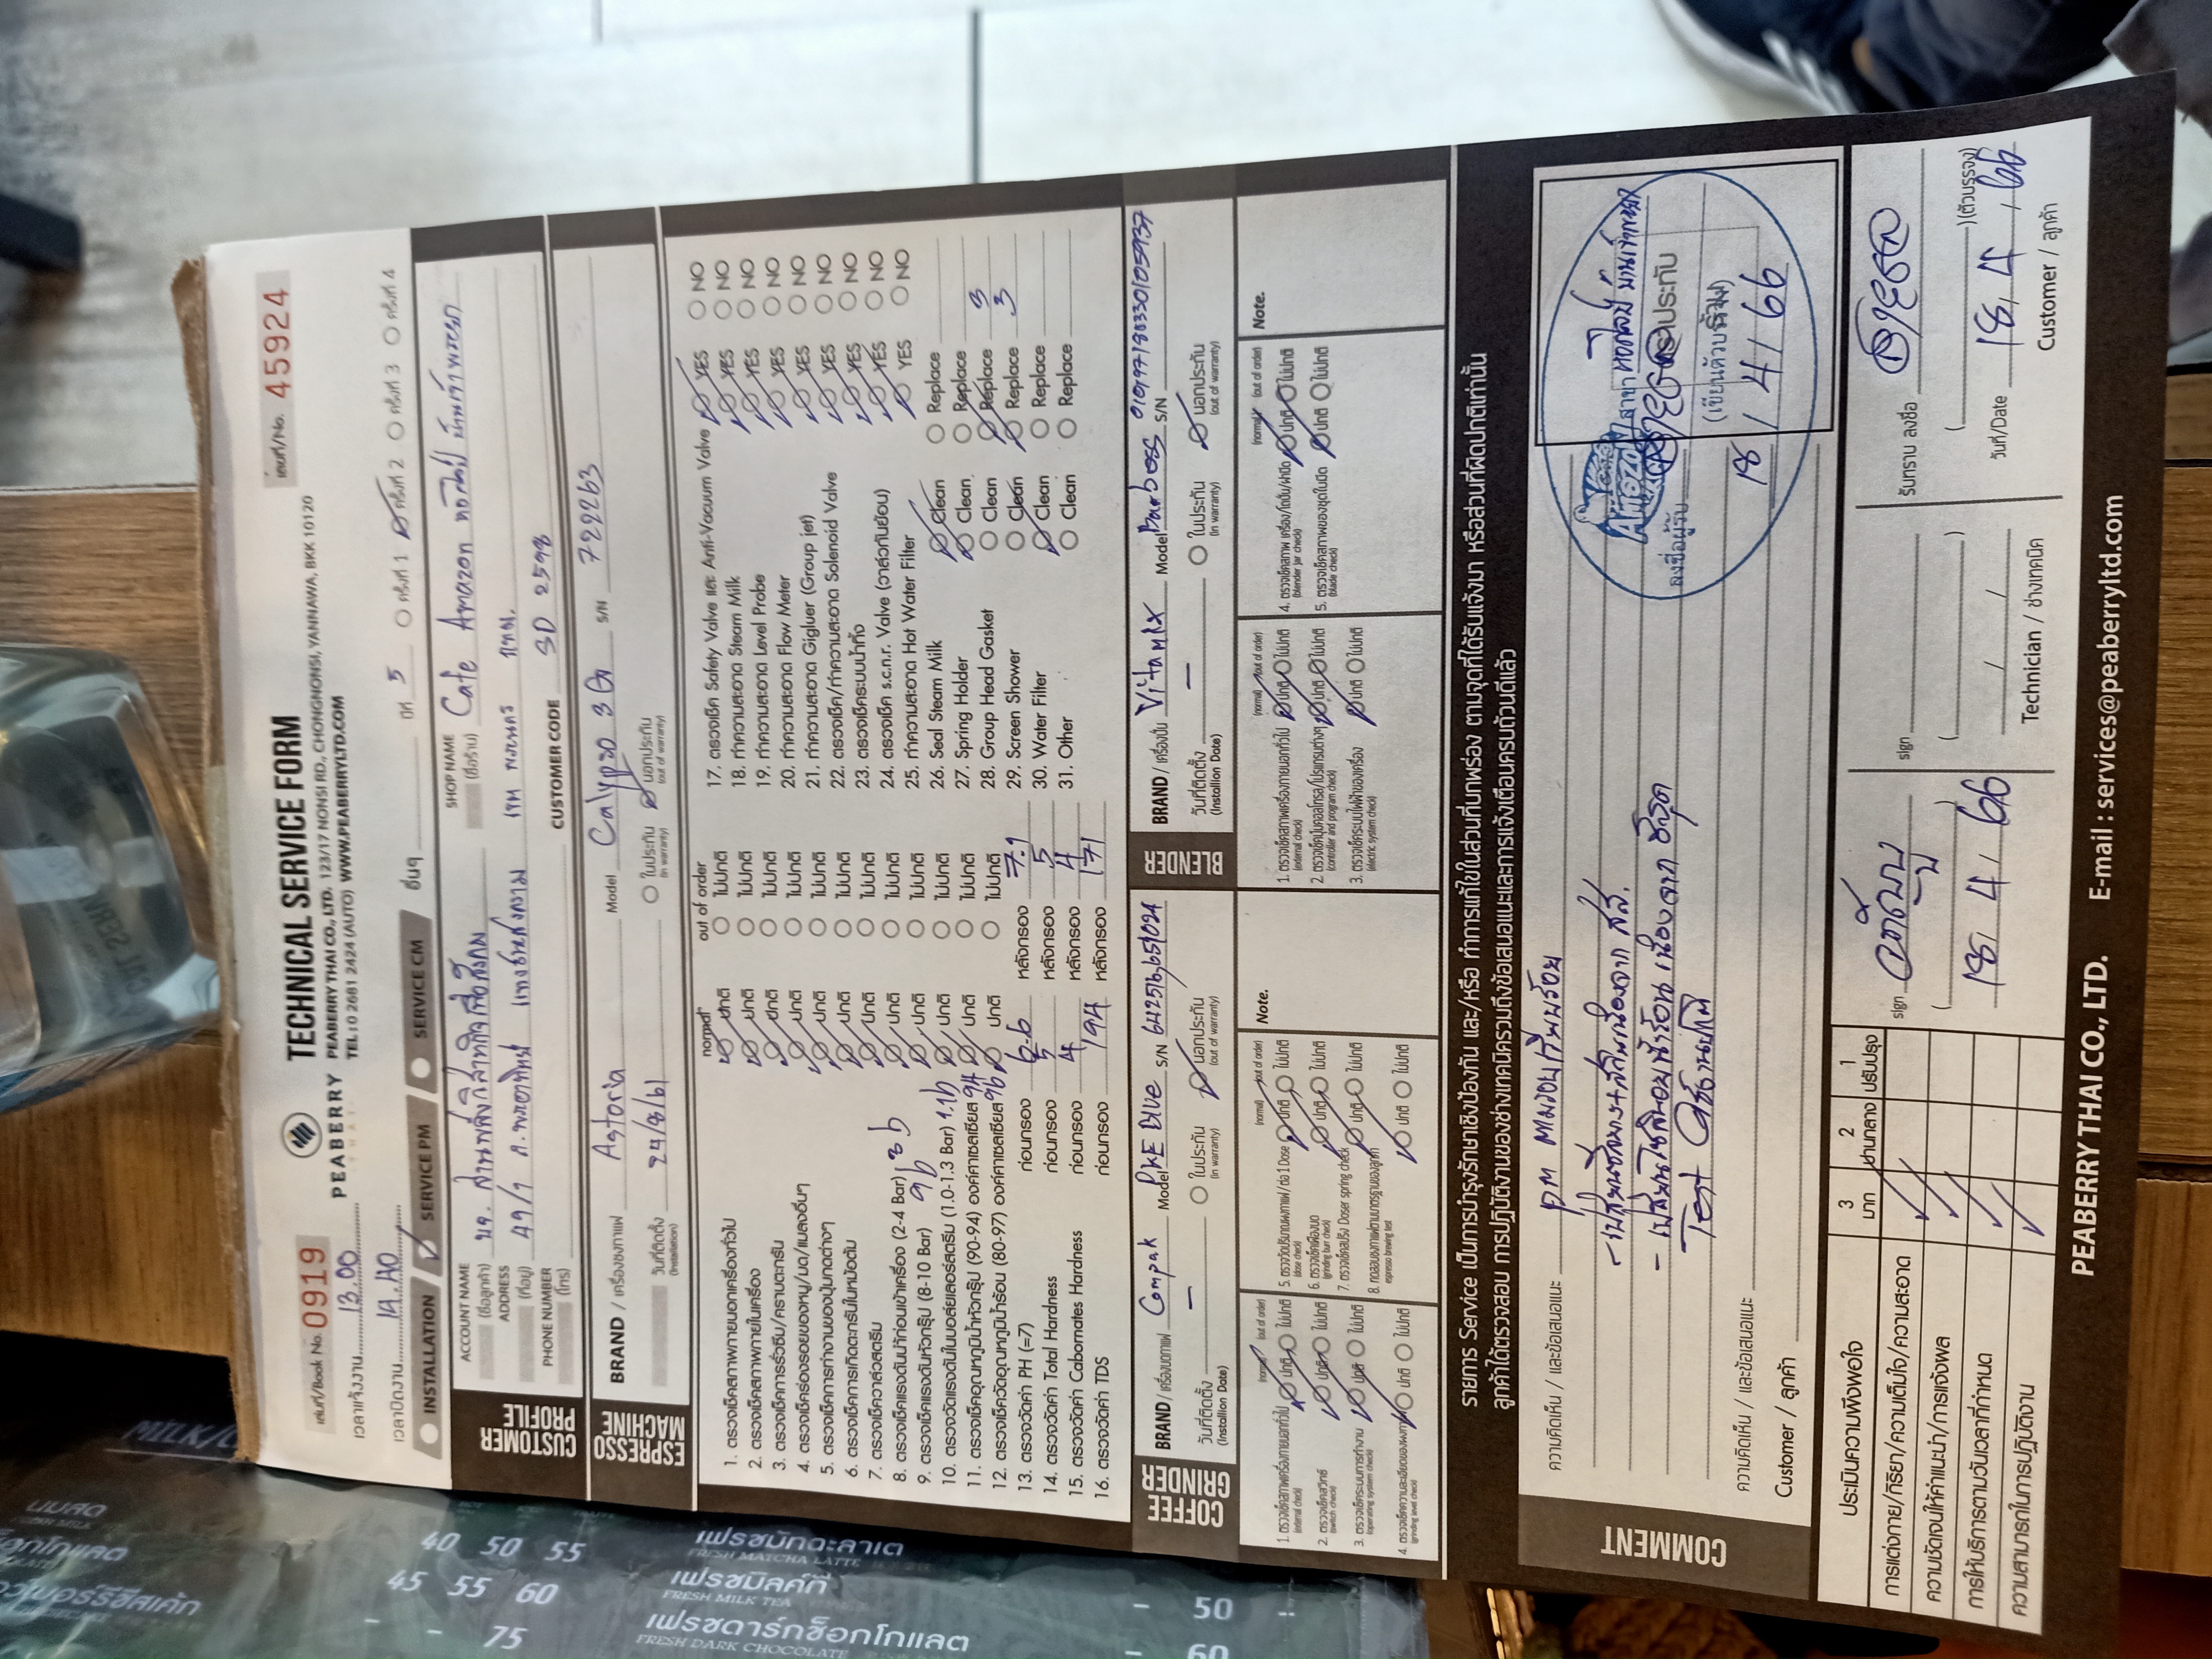 เล่มที่/Book No. 0919
PEABERRY
THAI
TECHNICAL SERVICE FORM
PEABERRY THAI CO., LTD. 123/17 NONSI RD., CHONGNONSI, YANNAWA, BKK 10120
TEL : 0 2681 2424 (AUTO) WWW.PEABERRYLTD.COM
เลขที่/No. 45924
เวลาแจ้งงาน 13.00
เวลาปิดงาน 14.40
INSTALLATION / SERVICE PM SERVICE CM อื่นๆ ปีที่ 5 ครั้งที่ 1 ครั้งที่ 2 ครั้งที่ 3 ครั้งที่ 4
CUSTOMER PROFILE
ACCOUNT NAME (ชื่อลูกค้า) บจ. สานพลังวิสาหกิจเพื่อสังคม
SHOP NAME (ชื่อร้าน) Cafe Amazon
ADDRESS (ที่อยู่) 49/1 ถ.พระอาทิตย์ แขวงชนะสงคราม เขต พระนคร กทม.
PHONE NUMBER (โทร)
CUSTOMER CODE SD 2598
ESPRESSO MACHINE
BRAND / เครื่องชงกาแฟ Astoria Model Calypso 3 G S/N 729263
วันที่ติดตั้ง (Installation) 24/8/61 ในประกัน (in warranty) นอกประกัน (out of warranty)
normal out of order
1. ตรวจเช็คสภาพภายนอกเครื่องทั่วไป ปกติ ไม่ปกติ
2. ตรวจเช็คสภาพภายในเครื่อง ปกติ ไม่ปกติ
3. ตรวจเช็คการรั่วซึม/คราบตะกรัน ปกติ ไม่ปกติ
4. ตรวจเช็คร่องรอยของหนู/มด/แมลงอื่นๆ ปกติ ไม่ปกติ
5. ตรวจเช็คการทำงานของปุ่มกดต่างๆ ปกติ ไม่ปกติ
6. ตรวจเช็คการเกิดตะกรันในหม้อต้ม ปกติ ไม่ปกติ
7. ตรวจเช็ควาล์วสตรีม ปกติ ไม่ปกติ
8. ตรวจเช็คแรงดันน้ำก่อนเข้าเครื่อง (2-4 Bar) 3 b ปกติ ไม่ปกติ
9. ตรวจเช็คแรงดันหัวกรุ๊ป (8-10 Bar) 9 b ปกติ ไม่ปกติ
10. ตรวจวัดแรงดันในบอยล์เลอร์สตรีม (1.0-1.3 Bar) 1.1b ปกติ ไม่ปกติ
11. ตรวจเช็คอุณหภูมิน้ำหัวกรุ๊ป (90-94) องศ์ศาเซลเซียส 94 ปกติ ไม่ปกติ
12. ตรวจเช็ควัดอุณหภูมิน้ำร้อน (80-97) องศ์ศาเซลเซียส 96 ปกติ ไม่ปกติ
13. ตรวจวัดค่า PH (=7) ก่อนกรอง 6.6 หลังกรอง 7.1
14. ตรวจวัดค่า Total Hardness ก่อนกรอง 5 หลังกรอง 5
15. ตรวจวัดค่า Cabornates Hardness ก่อนกรอง 4 หลังกรอง 4
16. ตรวจวัดค่า TDS ก่อนกรอง 194 หลังกรอง 171
17. ตรวจเช็ค Safety Valve และ Anti-Vacuum Valve YES NO
18. ทำความสะอาด Steam Milk YES NO
19. ทำความสะอาด Level Probe YES NO
20. ทำความสะอาด Flow Meter YES NO
21. ทำความสะอาด Gigluer (Group jet) YES NO
22. ตรวจเช็ค/ทำความสะอาด Solenoid Valve YES NO
23. ตรวจเช็คระบบน้ำทิ้ง YES NO
24. ตรวจเช็ค s.c.n.r. Valve (วาล์วกันย้อน) YES NO
25. ทำความสะอาด Hot Water Filter YES NO
26. Seal Steam Milk Clean Replace
27. Spring Holder Clean Replace
28. Group Head Gasket Clean Replace 3
29. Screen Shower Clean Replace 3
30. Water Filter Clean Replace
31. Other Clean Replace
COFFEE GRINDER
BRAND / เครื่องบดกาแฟ Compak Model PKE Blue S/N 642516,651024
วันที่ติดตั้ง (Installion Date) - ในประกัน (in warranty) นอกประกัน (out of warranty)
(normal) (out of order)
1. ตรวจเช็คสภาพเครื่องภายนอกทั่วไป ปกติ ไม่ปกติ
(external check)
2. ตรวจเช็คสวิทซ์ ปกติ ไม่ปกติ
(switch check)
3. ตรวจเช็คระบบการทำงาน ปกติ ไม่ปกติ
(operating system check)
4. ตรวจเช็คความละเอียดของผงกาแฟ ปกติ ไม่ปกติ
(grinding level check)
5. ตรวจวัดปริมาณผงกาแฟ/ต่อ 1 Dose ปกติ ไม่ปกติ
(dose check)
6. ตรวจเช็คเฟืองบด ปกติ ไม่ปกติ
(grinding burr check)
7. ตรวจเช็คสปริง Doser spring check ปกติ ไม่ปกติ
8. ทดสอบชงกาแฟตามมาตรฐานของลูกค้า ปกติ ไม่ปกติ
espresso brewing test
Note.
BLENDER
BRAND / เครื่องปั่น Vitamix Model Barboss S/N
วันที่ติดตั้ง (Installion Date) - ในประกัน (in warranty) นอกประกัน (out of warranty)
(normal) (out of order)
1. ตรวจเช็คสภาพเครื่องภายนอกทั่วไป ปกติ ไม่ปกติ
(external check)
2. ตรวจเช็คปุ่มคอลโทรล/โปรแกรมต่างๆ ปกติ ไม่ปกติ
(controller and program check)
3. ตรวจเช็คระบบไฟฟ้าของเครื่อง ปกติ ไม่ปกติ
(electric system check)
4. ตรวจเช็คสภาพ เครื่อง/โถปั่น/ฝาปิด ปกติ ไม่ปกติ
(blender jar check)
5. ตรวจเช็คสภาพของชุดใบมีด ปกติ ไม่ปกติ
(blade check)
Note.
รายการ Service เป็นการบำรุงรักษาเชิงป้องกัน และ/หรือ ทำการแก้ไขในส่วนที่บกพร่อง ตามจุดที่ได้รับแจ้งมา หรือส่วนที่ผิดปกติเท่านั้น
ลูกค้าได้ตรวจสอบ การปฏิบัติงานของช่างเทคนิครวมถึงข้อเสนอแนะและการแจ้งเตือนครบถ้วนดีแล้ว
COMMENT
ความคิดเห็น / และข้อเสนอแนะ PM ตามรอบเรียบร้อย
- เปลี่ยนซีลยาง+สกรีนเนื่องจาก สส.
Test ใช้งานปกติ
ความคิดเห็น / และข้อเสนอแนะ
Customer / ลูกค้า
Café Amazon สาขา
ลงชื่อผู้รับ ประกับ
(เขียนตัวบรรจง)
18 / 4 / 66
ประเมินความพึงพอใจ 3 มาก 2 ปานกลาง 1 ปรับปรุง
การแต่งกาย/กิริยา/ความเต็มใจ/ความสะอาด
ความชัดเจนให้คำแนะนำ/การแจ้งผล
การให้บริการตามวันเวลาที่กำหนด
ความสามารถในการปฏิบัติงาน
sign
18 / 4 / 66
sign
Technician / ช่างเทคนิค
รับทราบ ลงชื่อ
(ตัวบรรจง)
วันที่/Date 18 / 4 / 66
Customer / ลูกค้า
PEABERRY THAI CO., LTD. E-mail : services@peaberryltd.com
นมสด
40 50 55
45 55 60
- - 75
เฟรชมัทฉะลาเต้
FRESH MATCHA LATTE
เฟรชมิลค์ที
FRESH MILK TEA
- 50 --
เฟรชดาร์กช็อกโกแลต
FRESH DARK CHOCOLATE
- 60